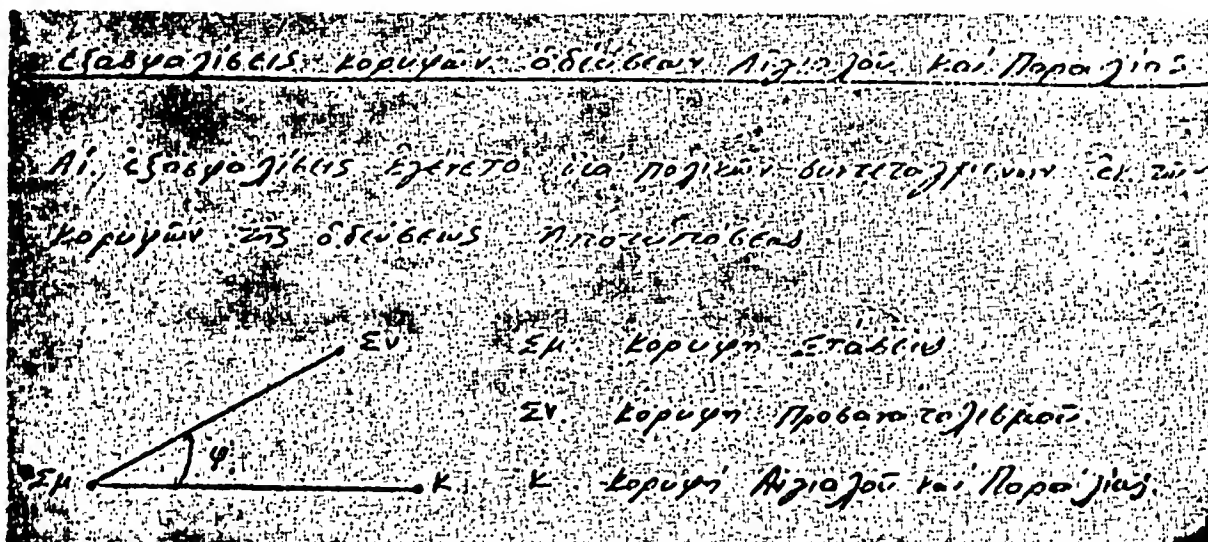 Ἐξασφαλίσεις κορυφῶν ὁδεύσεων Αἰγιαλοῦ καί Παραλίας
Αἱ ἐξασφαλίσεις ἐγένετο διά πολικῶν συντεταγμένων ἐκ τῶν
κορυφῶν τῆς ὁδεύσεως Ἀποτυπώσεως
Σν
Σμ. Κορυφή Στάσεως
Σν. Κορυφή Προσανατολισμοῦ.
φ.
Σμ
Κ
Κ Κορυφή Αἰγιαλοῦ καί Παραλίας.